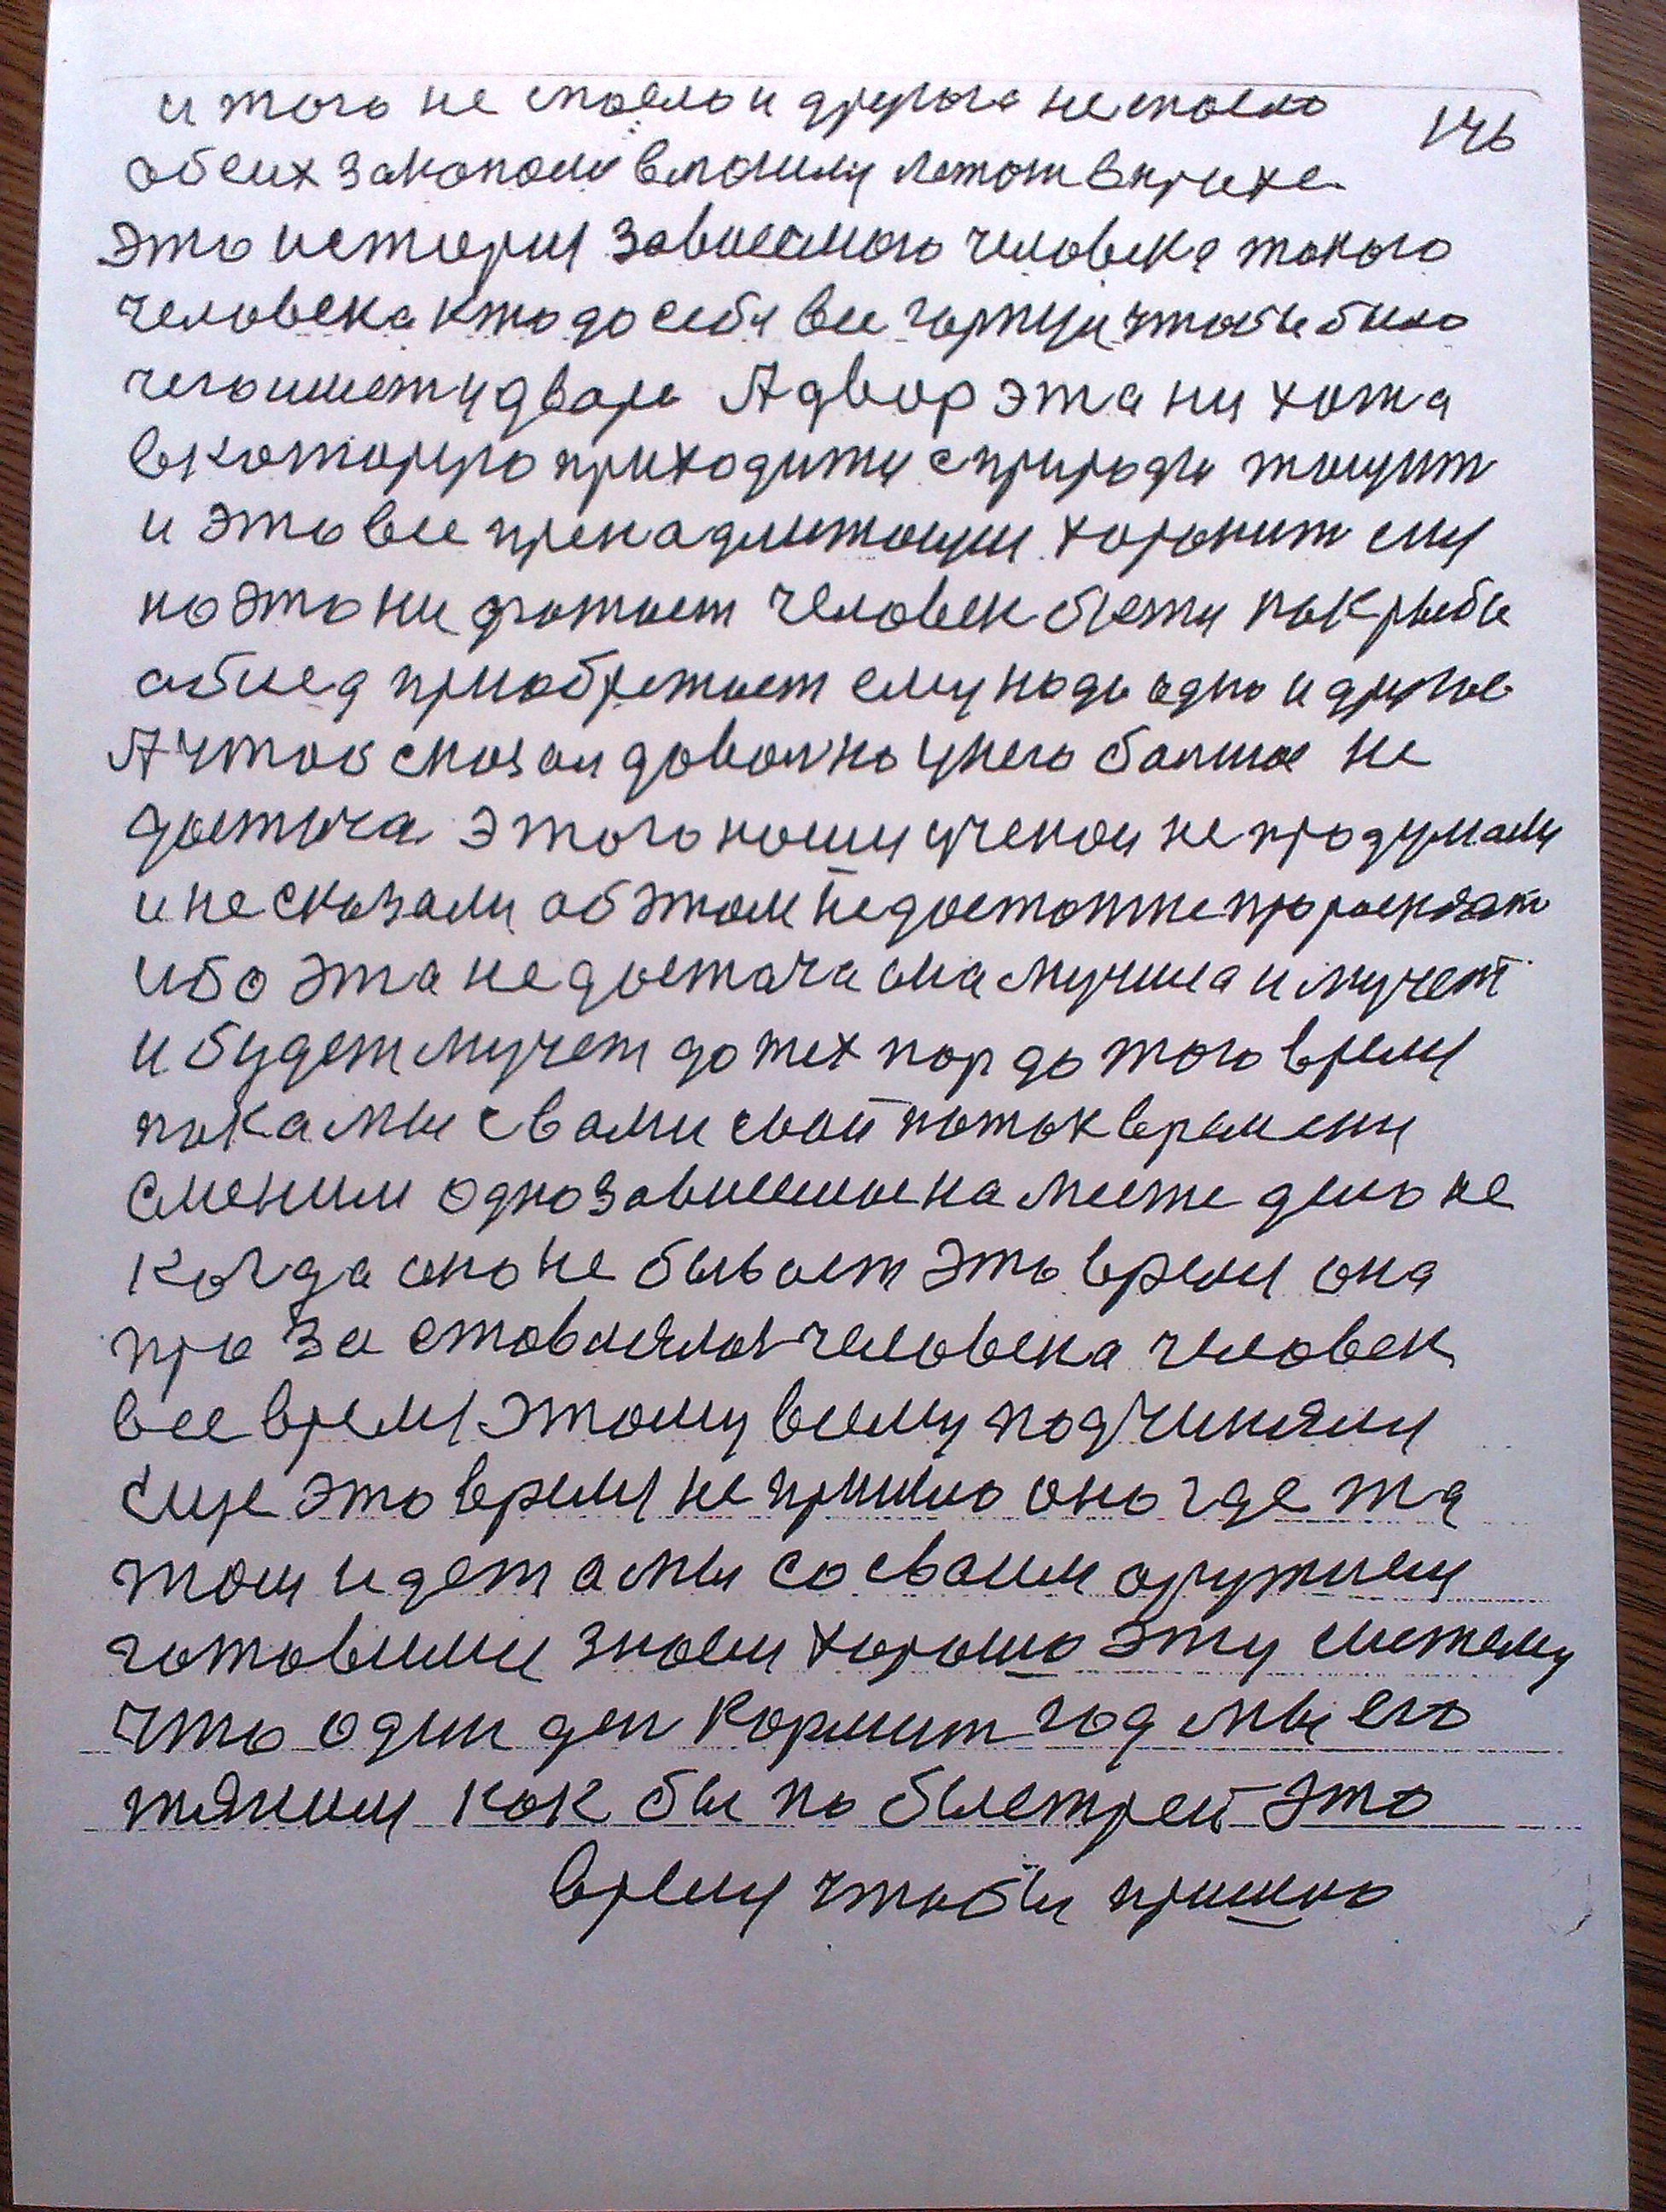 и того не стоело и другога не стоело 146
обеих закопали в могилу лежат в прихе
это история зависемого человека такого
человека кто до себя все горнул чтобы было
у двори А двор эта ни хота
в которую приходити с природы тощит
и это все хоронит ему
но это ни фотоет человек бежи как рыбы
обиед приобретает ему надо одно и другое
А что б сказал доволно у него болшое не
достача этого ноши ученои не продумали
и не сказали об этом недостатке
ибо эта недостача она мучила и мучет
и будет мучет до тех пор до того время
пока мы с вами свой поток времени
сменим одно зависемое на месте дело не
когда оно не бывает это время она
про за человека человек
все время этому всему подчиняли
еще это время не пришло оно где та
там идет а мы со своим оружием
готовыми знаем хорошо эту систему
что один ден кормит год мы его
тяним как бы по быстрей это
время чтобы пришло